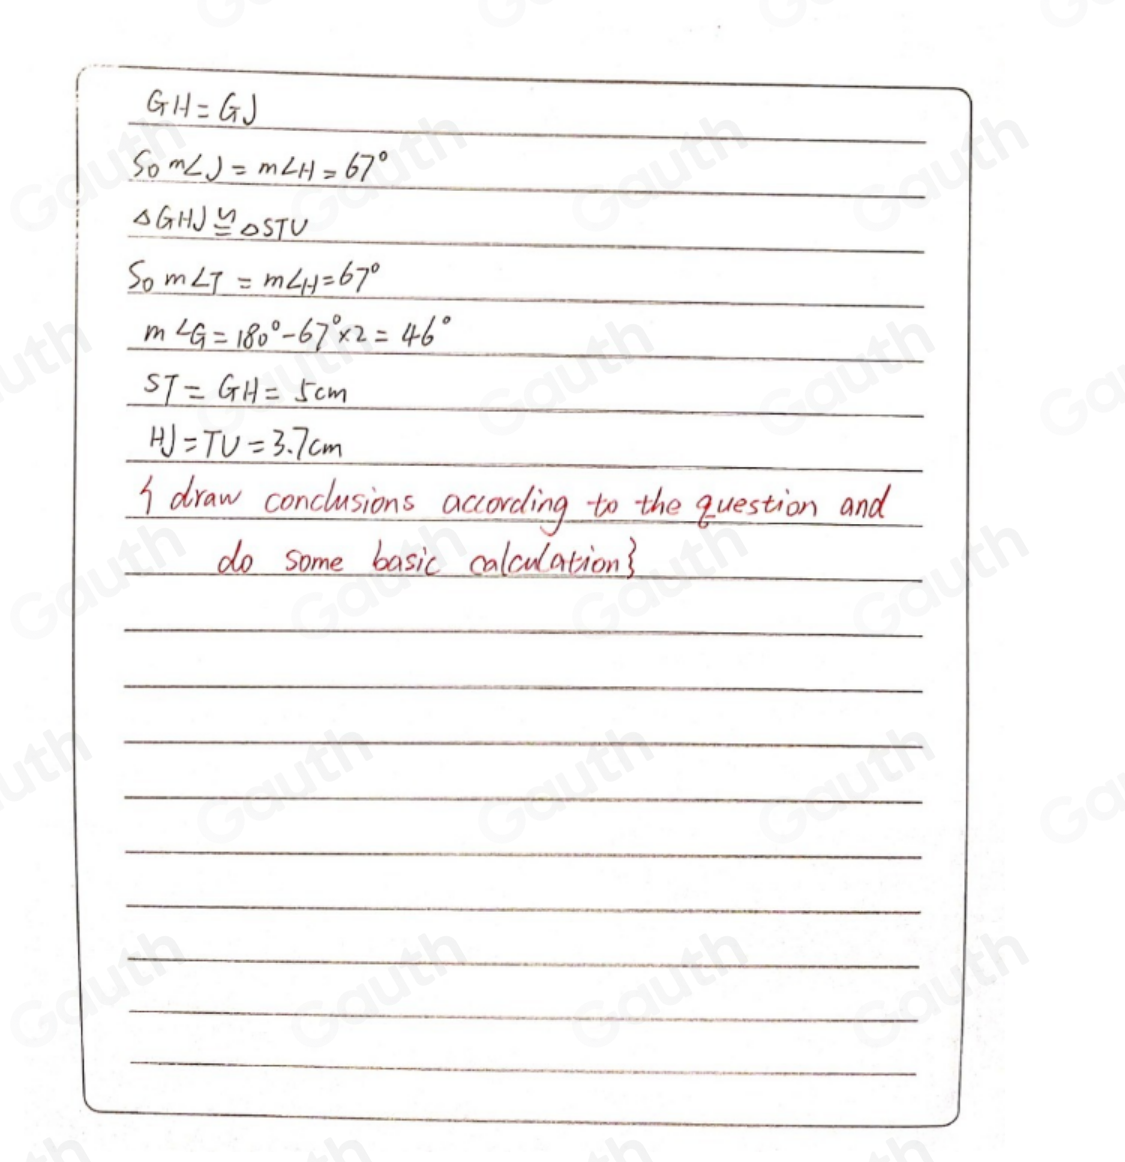 GH = GJ
So m∠J = m∠H = 67°
△GHJ ≌ △STU
So m∠T = m∠H = 67°
m∠G = 180° - 67° × 2 = 46°
ST = GH = 5cm
HJ = TU = 3.7cm
{ draw conclusions according to the question and
do some basic calculation}